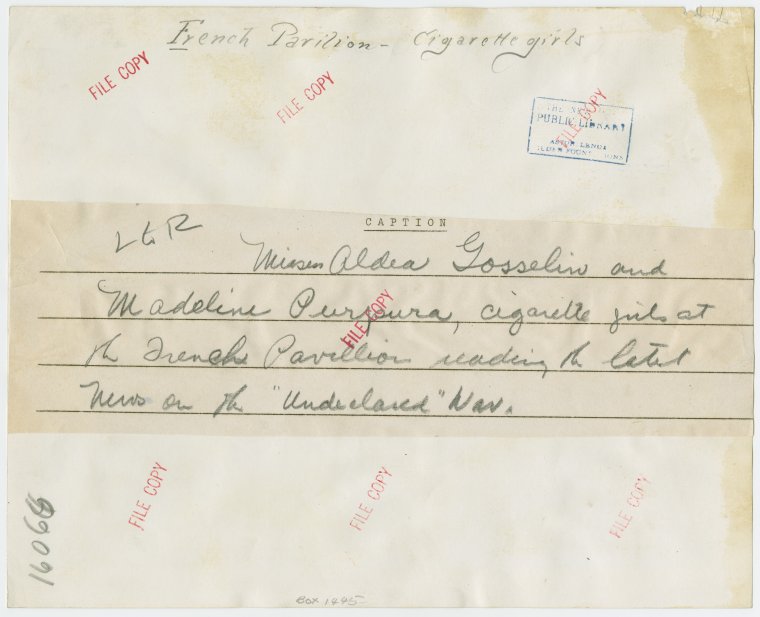 French Pavilion - Cigarette girls
FILE COPY
FILE COPY
FILE COPY
THE NEW
PUBLIC LIBRARY
ASTOR LENOX
TILDEN FOUNDATIONS
CAPTION
L to R
Misses Aldea Gosselin and
Madeline Purpura, cigarette girls at
the French Pavillion reading the latest
News on the "Undeclared" War.
FILE COPY
FILE COPY
FILE COPY
FILE COPY
16066
BOX 1445